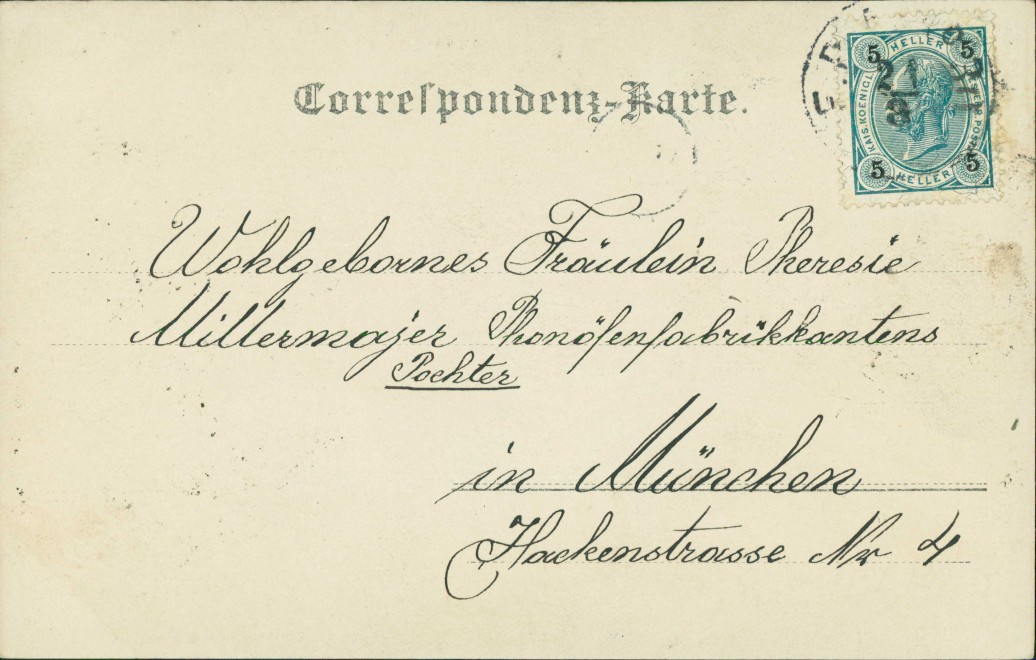 Correspondenz-Karte.
5 HELLER 5
KAIS. KOENIGL.
POST
5 HELLER 5
21
3
Wohlgebornes Fräulein Theresie
Millermajer Thonöfenfabrikkantens
Tochter
in München
Hackenstrasse Nr 4